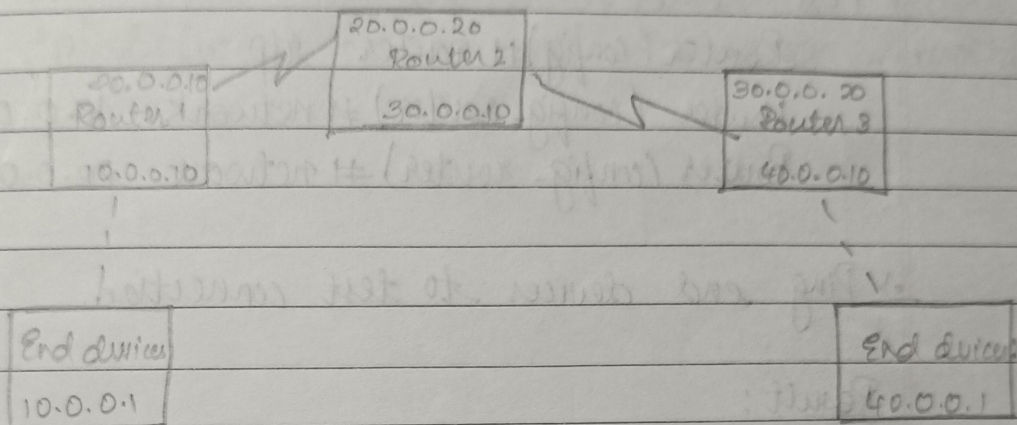 20.0.0.20
Router 2
30.0.0.10
20.0.0.10
Router 1
10.0.0.10
30.0.0.20
Router 3
40.0.0.10
End devices
10.0.0.1
End devices
40.0.0.1